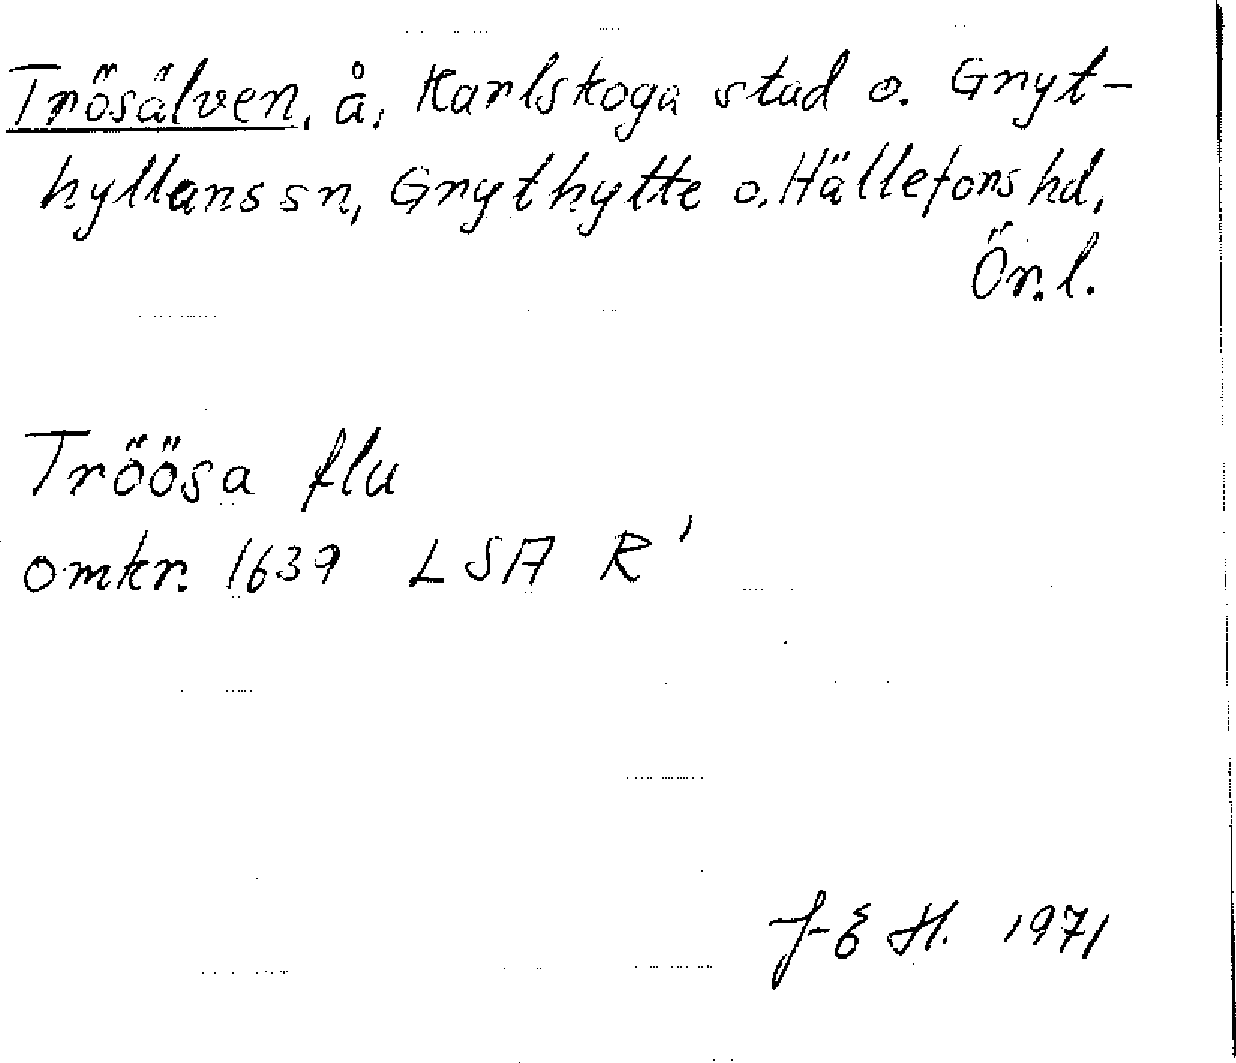 Trösälven, å, Karlskoga stad o. Gryt-
hyttans sn, Grythytte o. Hällefors hd,
Ör. l.
Tröösa flu
omkr. 1639 LSA R'
J-E H. 1971